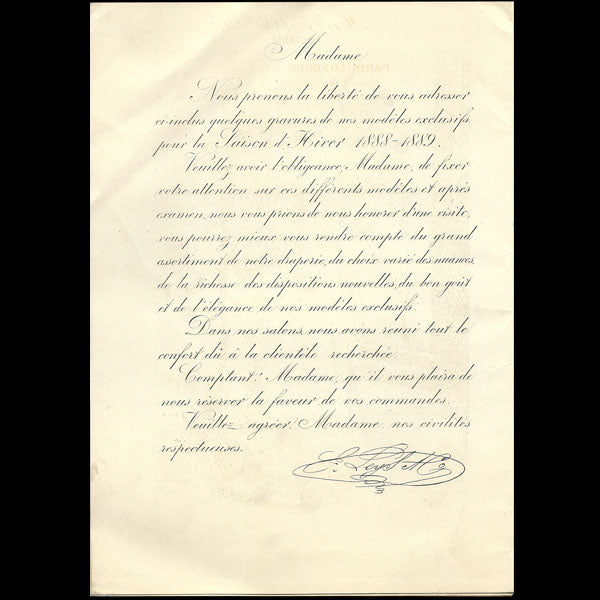 Madame
Nous prenons la liberté de vous adresser
ci-inclus quelques gravures de nos modèles exclusifs
pour la Saison d'Hiver 1888-1889.
Veuillez avoir l'obligeance, Madame, de fixer
votre attention sur ces différents modèles et après
examen, nous vous prions de nous honorer d'une visite,
vous pourrez mieux vous rendre compte du grand
assortiment de notre draperie, du choix varié des nuances,
de la richesse des dispositions nouvelles, du bon goût
et de l'élégance de nos modèles exclusifs.
Dans nos salons, nous avons réuni tout le
confort dû à la clientèle recherchée.
Comptant, Madame, qu'il vous plaira de
nous réserver la faveur de vos commandes.
Veuillez agréer, Madame, nos civilités
respectueuses.